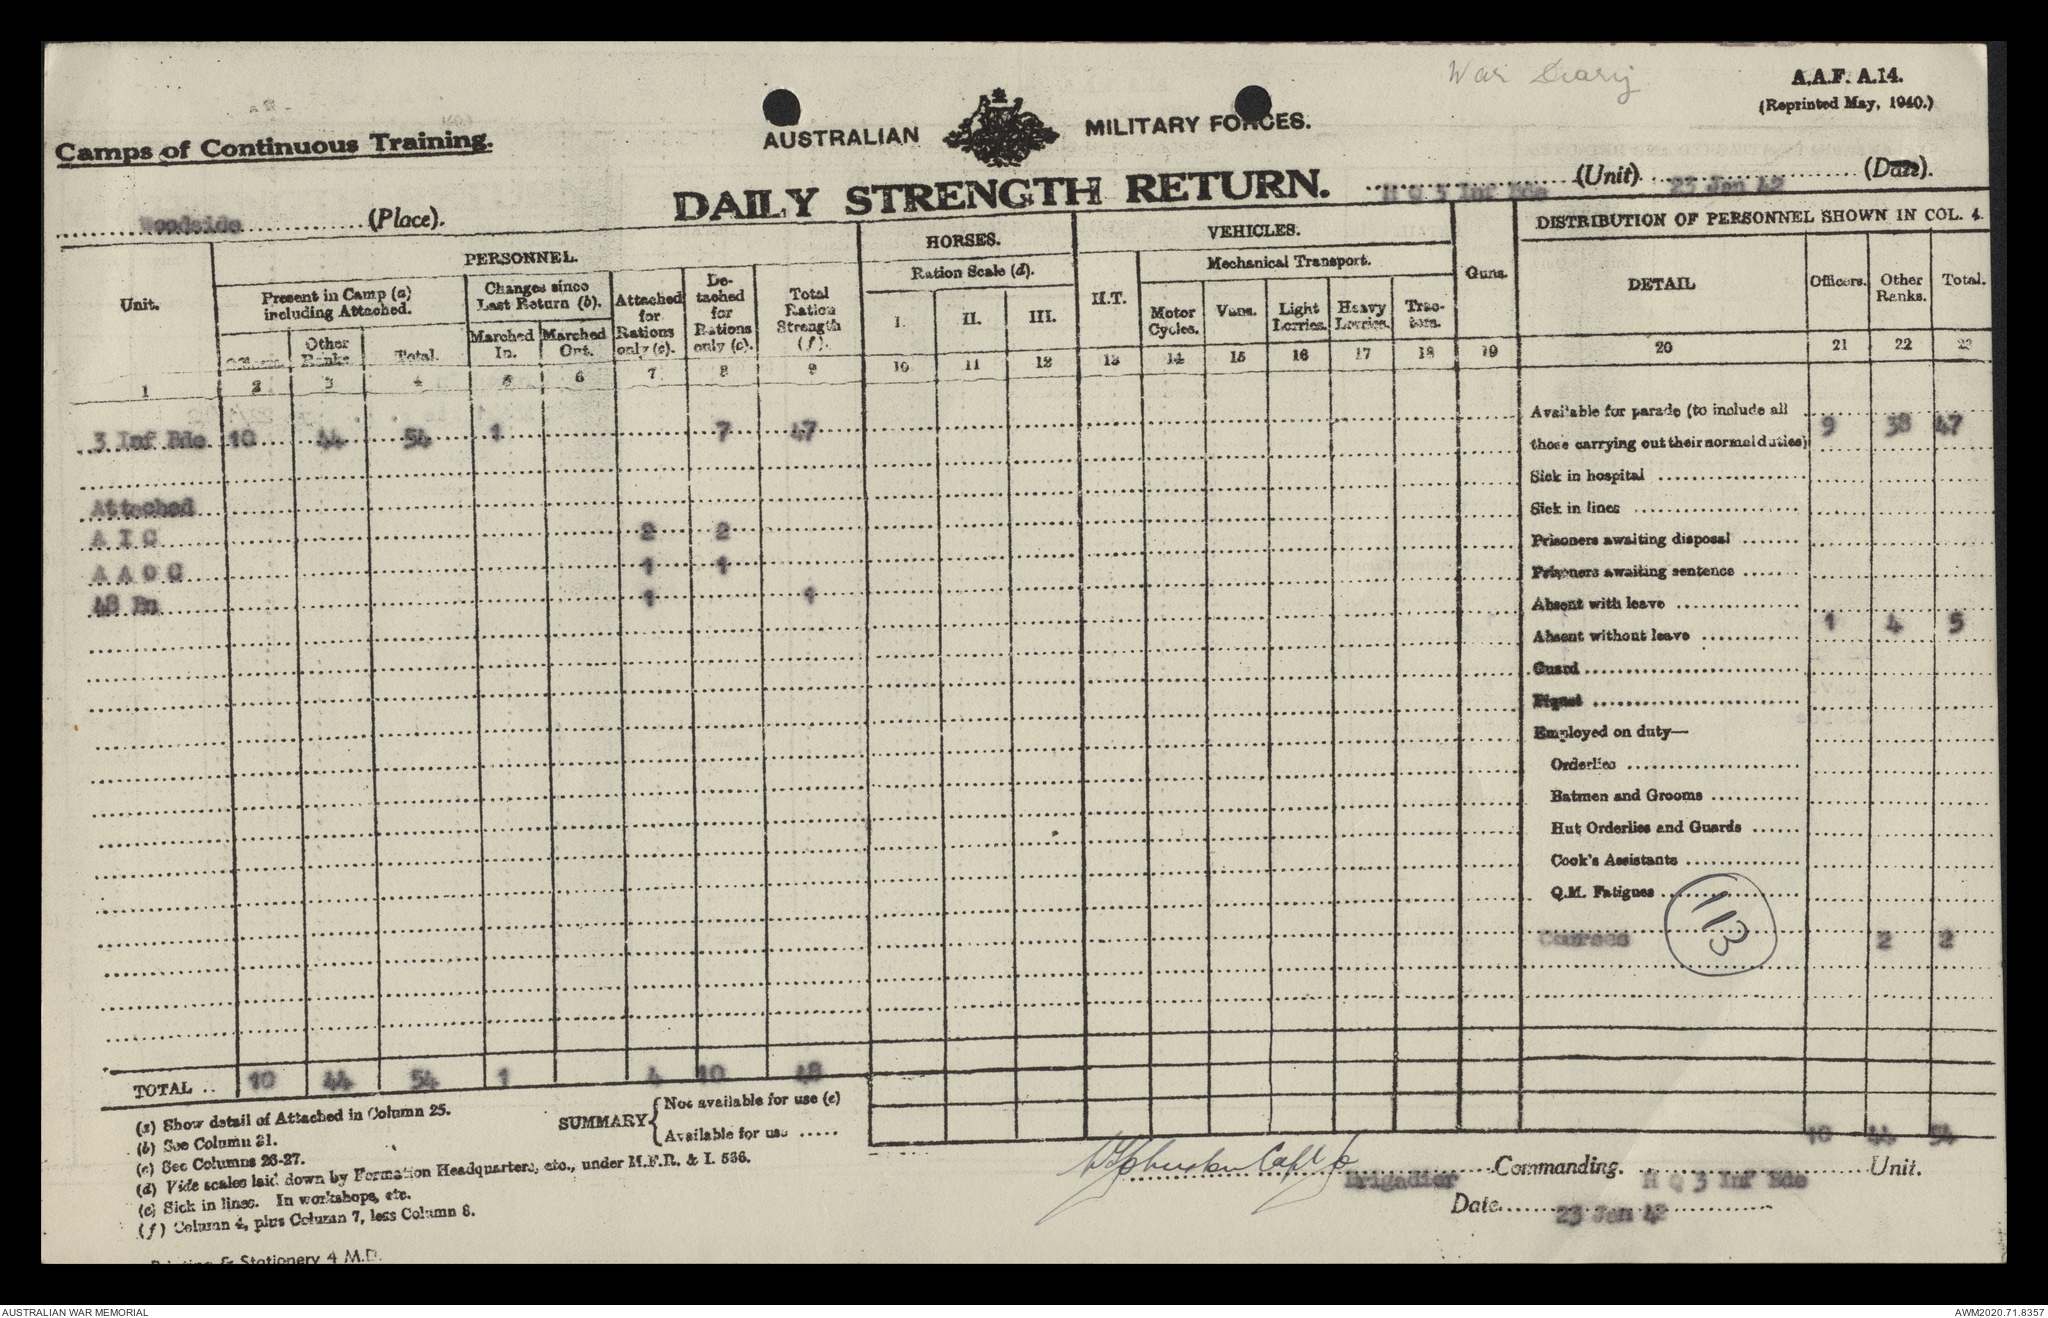 War Diary
A.A.F. A.14.
(Reprinted May, 1940.)
Camps of Continuous Training.
AUSTRALIAN MILITARY FORCES.
DAILY STRENGTH RETURN.
H Q 3 Inf Bde (Unit) 23 Jan 42 (Date).
Woodside (Place).
PERSONNEL.
HORSES.
VEHICLES.
DISTRIBUTION OF PERSONNEL SHOWN IN COL. 4.
Unit.
Present in Camp (a) including Attached.
Officers.
Other Ranks.
Total.
Changes since Last Return (b).
Marched In.
Marched Out.
Attached for Rations only (c).
Detached for Rations only (c).
Total Ration Strength (f).
Ration Scale (d).
I. II. III.
H.T.
Mechanical Transport.
Motor Cycles.
Vans.
Light Lorries.
Heavy Lorries.
Tractors.
Guns.
DETAIL
Officers.
Other Ranks.
Total.
1 2 3 4 5 6 7 8 9 10 11 12 13 14 15 16 17 18 19 20 21 22 23
3 Inf Bde 10 44 54 1 7 47
Attached
A I C 2 2
A A O C 1 1
48 Bn 1 1
TOTAL .. 10 44 54 1 4 10 48
Available for parade (to include all
those carrying out their normal duties) 9 38 47
Sick in hospital
Sick in lines
Prisoners awaiting disposal
Prisoners awaiting sentence
Absent with leave
Absent without leave 1 4 5
Guard
Piquet
Employed on duty—
Orderlies
Batmen and Grooms
Hut Orderlies and Guards
Cook's Assistants
Q.M. Fatigues
113
Courses 2 2
10 44 54
(a) Show detail of Attached in Column 25.
(b) See Column 31.
(c) See Columns 26-27.
(d) Vide scales laid down by Formation Headquarters, etc., under M.F.R. & I. 536.
(e) Sick in lines. In workshops, etc.
(f) Column 4, plus Column 7, less Column 8.
SUMMARY
Not available for use (e)
Available for use .....
Capt
Brigadier Commanding. H Q 3 Inf Bde Unit.
Date 23 Jan 42
Printing & Stationery 4 M.D.
AUSTRALIAN WAR MEMORIAL
AWM2020.71.8357